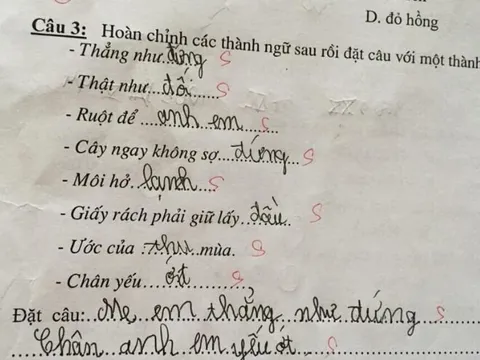 D. đỏ hồng
Câu 3: Hoàn chỉnh các thành ngữ sau rồi đặt câu với một thành
- Thẳng như đứng S
- Thật như...đối...... S
- Ruột để ....anh em...... S
- Cây ngay không sợ...đứng... S
- Môi hở..lạnh.... S
- Giấy rách phải giữ lấy..đầu.. S
- Ước của .thu..mùa. S
- Chân yếu....ớt......... S
Đặt câu:...Mẹ em thẳng như đứng S
Chân anh em yếu ớt S